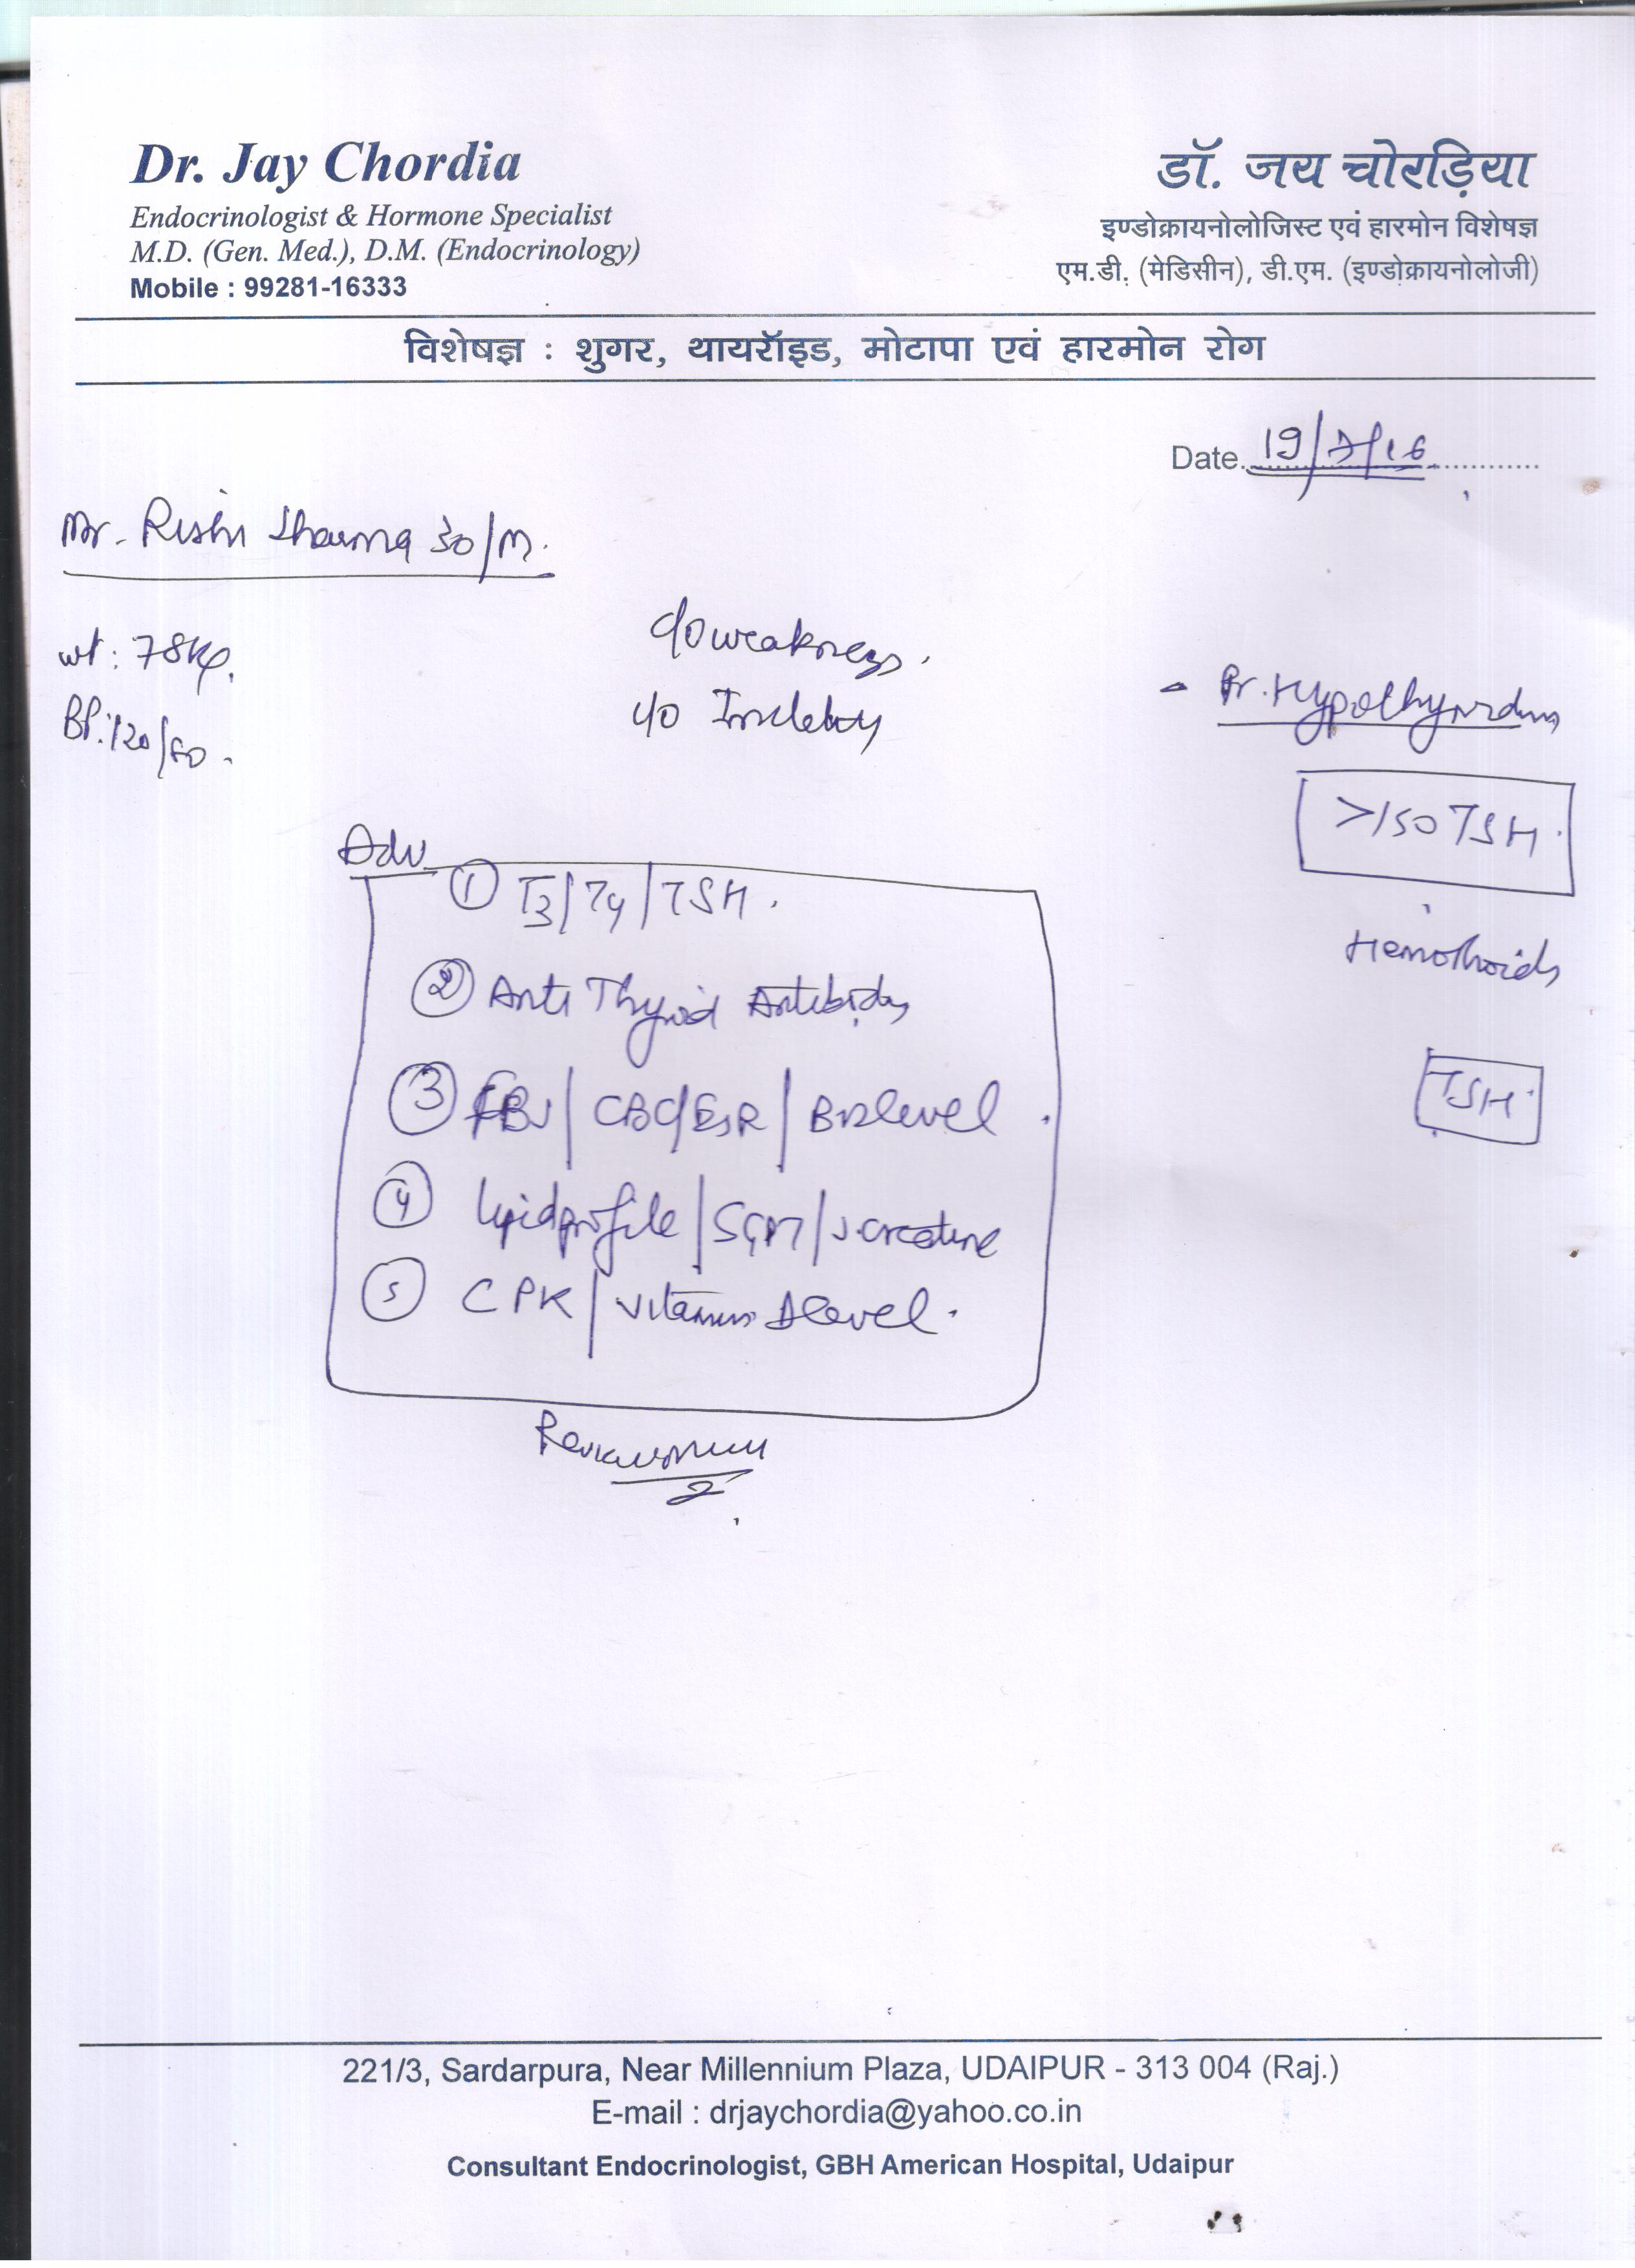 Dr. Jay Chordia
Endocrinologist & Hormone Specialist
M.D. (Gen. Med.), D.M. (Endocrinology)
Mobile : 99281-16333
डॉ. जय चोरड़िया
इण्डोक्रायनोलोजिस्ट एवं हारमोन विशेषज्ञ
एम.डी. (मेडिसीन), डी.एम. (इण्डोक्रायनोलोजी)
विशेषज्ञ : शुगर, थायरॉइड, मोटापा एवं हारमोन रोग
Date 19/7/16
Mr. Rishi Sharma 30/M.
wt: 78Kg.
BP: 120/80.
c/o weakness.
c/o
- Pr. Hypothyroidism
>150 TSH.
Hemorrhoids
TSH
Adv
① T3/T4/TSH.
② Anti Thyroid Antibodies
③ FBS/CBC/ESR/B12 level.
④ Lipid profile/SGPT/S. creatinine
⑤ CPK/Vitamin D level.
221/3, Sardarpura, Near Millennium Plaza, UDAIPUR - 313 004 (Raj.)
E-mail : drjaychordia@yahoo.co.in
Consultant Endocrinologist, GBH American Hospital, Udaipur